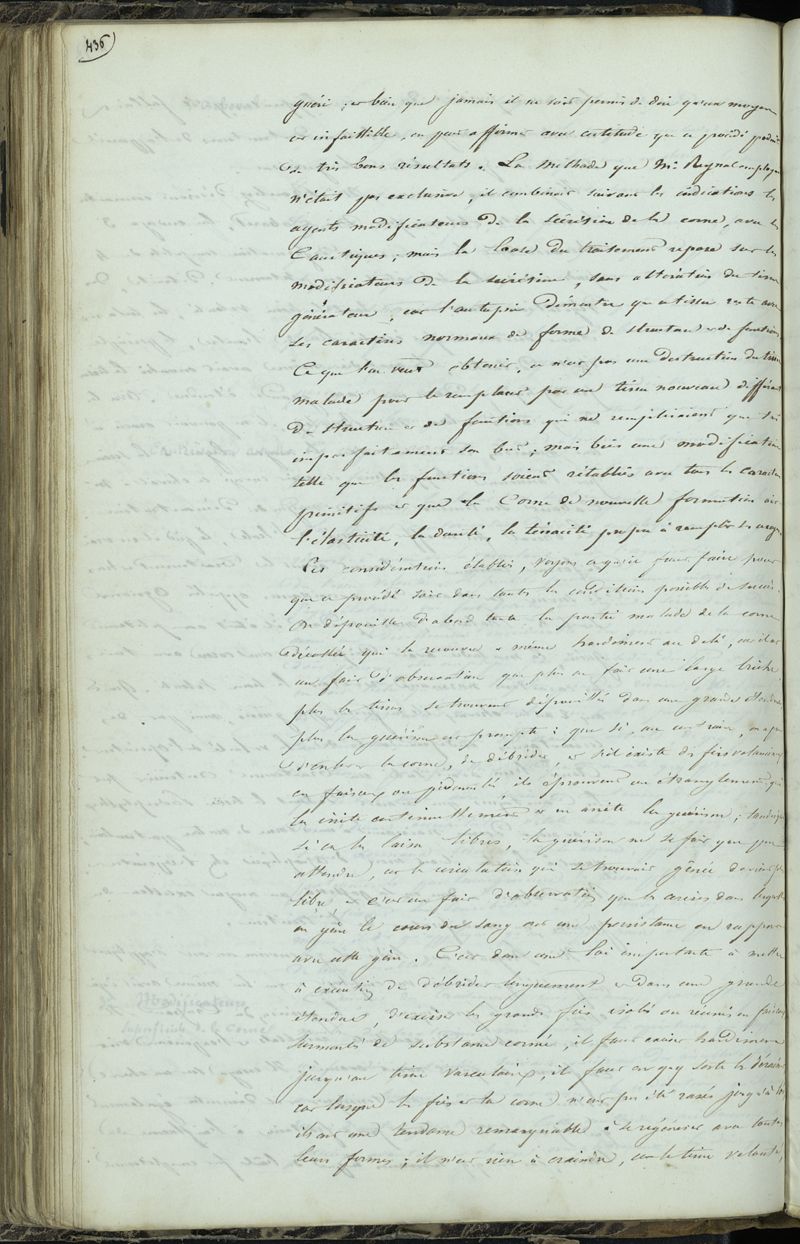 436
guéri ; et bien que jamais il ne soit permis de dire qu'un moyen
est infaillible, on peut affirmer avec certitude que ce procédé produit
de très bons résultats. La méthode que Mr Reynal employa
n'était pas exclusive, il combinait suivant les indications les
agents modificateurs de la sécrétion de la corne, avec les
Caustiques ; mais la base du traitement repose sur les
modificateurs de la sécrétion, sans altération du tissu
générateur, car l'autopsie démontre que ce tissu reste avec
ses caractères normaux de forme de structure et de fonctions
Ce que l'on veut obtenir, ce n'est pas une destruction du tissu
malade pour le remplacer par un tissu nouveau différent
de structure et de fonctions qui ne rempliraient que très
imparfaitement son but ; mais bien une modification
telle que les fonctions soient rétablies avec tous les caractères
primitifs et que la Corne de nouvelle formation ait
l'élasticité, la dureté, la ténacité propre à remplir ses usages
Ces considérations établies, voyons ce qu'il faut faire pour
que ce procédé soit dans toutes les conditions possibles de succès.
On dépouille d'abord toute la partie malade de la corne
décollée qui la recouvre et même hardiment au delà, car il est
un fait d'observation que plus on fait une large brèche
plus le tissu se trouve dépouillé dans une grande étendue
plus la guérison est prompte ; que si, au contraire, on a peur
d'enlever la corne, de débrider, et s'il existe des fics volumineux
en faisceaux ou pédonculés, ils éprouvent un étranglement qui
les irrite continuellement et en arrête la guérison ; tandis que
si on les laisse libres, la guérison ne se fait que peu
attendre, car la circulation qui se trouvait gênée devient plus
libre et c'est un fait d'observation que les caries dans lesquelles
on gêne le cours du sang ont une persistance en rapport
avec cette gêne. C'est donc une loi importante à mettre
à exécution de débrider largement et dans une grande
étendue, d'exciser les grands fics isolés ou réunis en faisceaux
surmontés de substance cornée, il faut exciser hardiment
jusqu'au tissu vasculaire, il faut en quelque sorte les déraciner
car lorsque les fics et la corne n'ont pas été rasés jusqu'à là
ils ont une tendance remarquable à se régénérer avec toutes
leurs formes ; il n'est rien à craindre, car le tissu velouté,